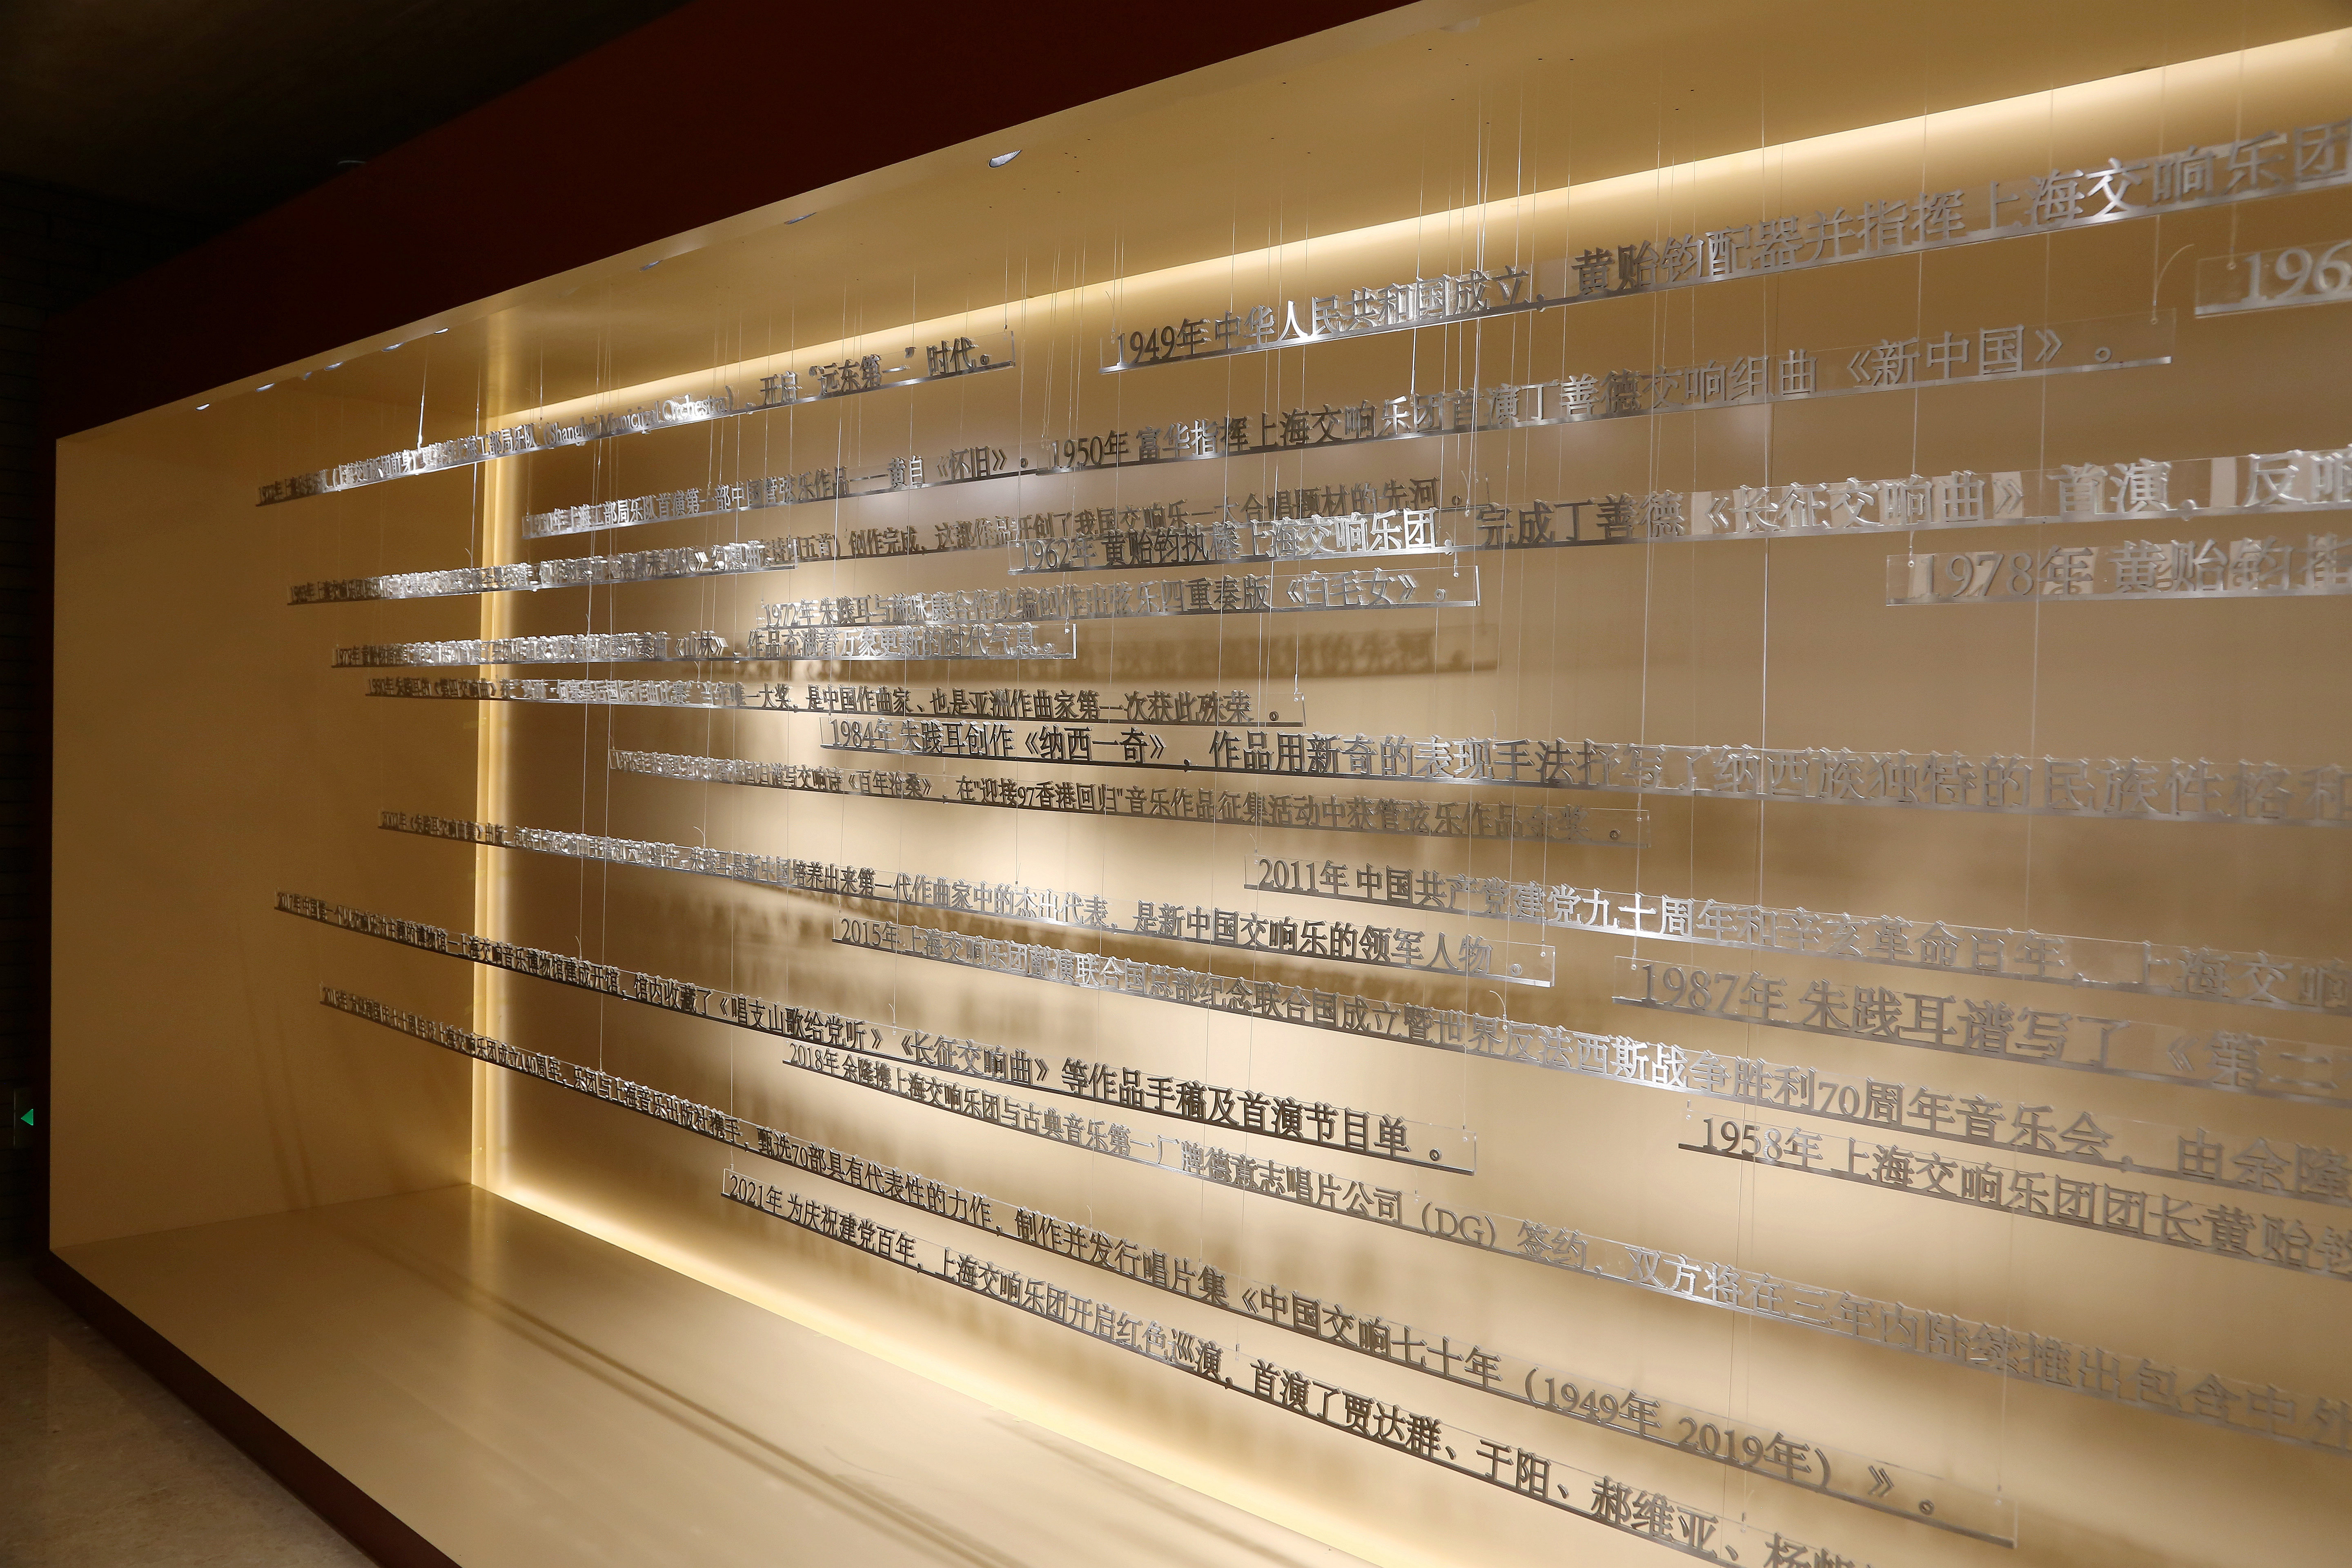 (Shanghai Municipal Orchestra)，开启“远东第一”时代。
1949年 中华人民共和国成立，黄贻钧配器并指挥上海交响乐团
196
上海工部局乐队首演第一部中国管弦乐作品——黄自《怀旧》。
1950年 富华指挥上海交响乐团首演丁善德交响组曲《新中国》。
创作完成，这部作品开创了我国交响乐—大合唱题材的先河。
1962年 黄贻钧执棒上海交响乐团，完成丁善德《长征交响曲》首演，反响
1978年 黄贻钧指
1972年 朱践耳与施咏康合作改编创作出弦乐四重奏版《白毛女》。
《山林》，作品充满着万象更新的时代气息。
唯一大奖，是中国作曲家、也是亚洲作曲家第一次获此殊荣。
1984年 朱践耳创作《纳西一奇》，作品用新奇的表现手法抒写了纳西族独特的民族性格和
回归谱写交响诗《百年沧桑》，在"迎接97香港回归"音乐作品征集活动中获管弦乐作品金奖。
2011年 中国共产党建党九十周年和辛亥革命百年，上海交响
朱践耳是新中国培养出来第一代作曲家中的杰出代表，是新中国交响乐的领军人物。
1987年 朱践耳谱写了《第三
2015年 上海交响乐团献演联合国总部纪念联合国成立暨世界反法西斯战争胜利70周年音乐会，由余隆
上海交响音乐博物馆建成开馆，馆内收藏了《唱支山歌给党听》《长征交响曲》等作品手稿及首演节目单。
1958年 上海交响乐团团长黄贻钧
2018年 余隆携上海交响乐团与古典音乐第一厂牌德意志唱片公司（DG）签约，双方将在三年内陆续推出包含中外
上海交响乐团成立140周年，乐团与上海音乐出版社携手，甄选70部具有代表性的力作，制作并发行唱片集《中国交响七十年（1949年 2019年）》。
2021年 为庆祝建党百年，上海交响乐团开启红色巡演，首演了贾达群、于阳、郝维亚、杨